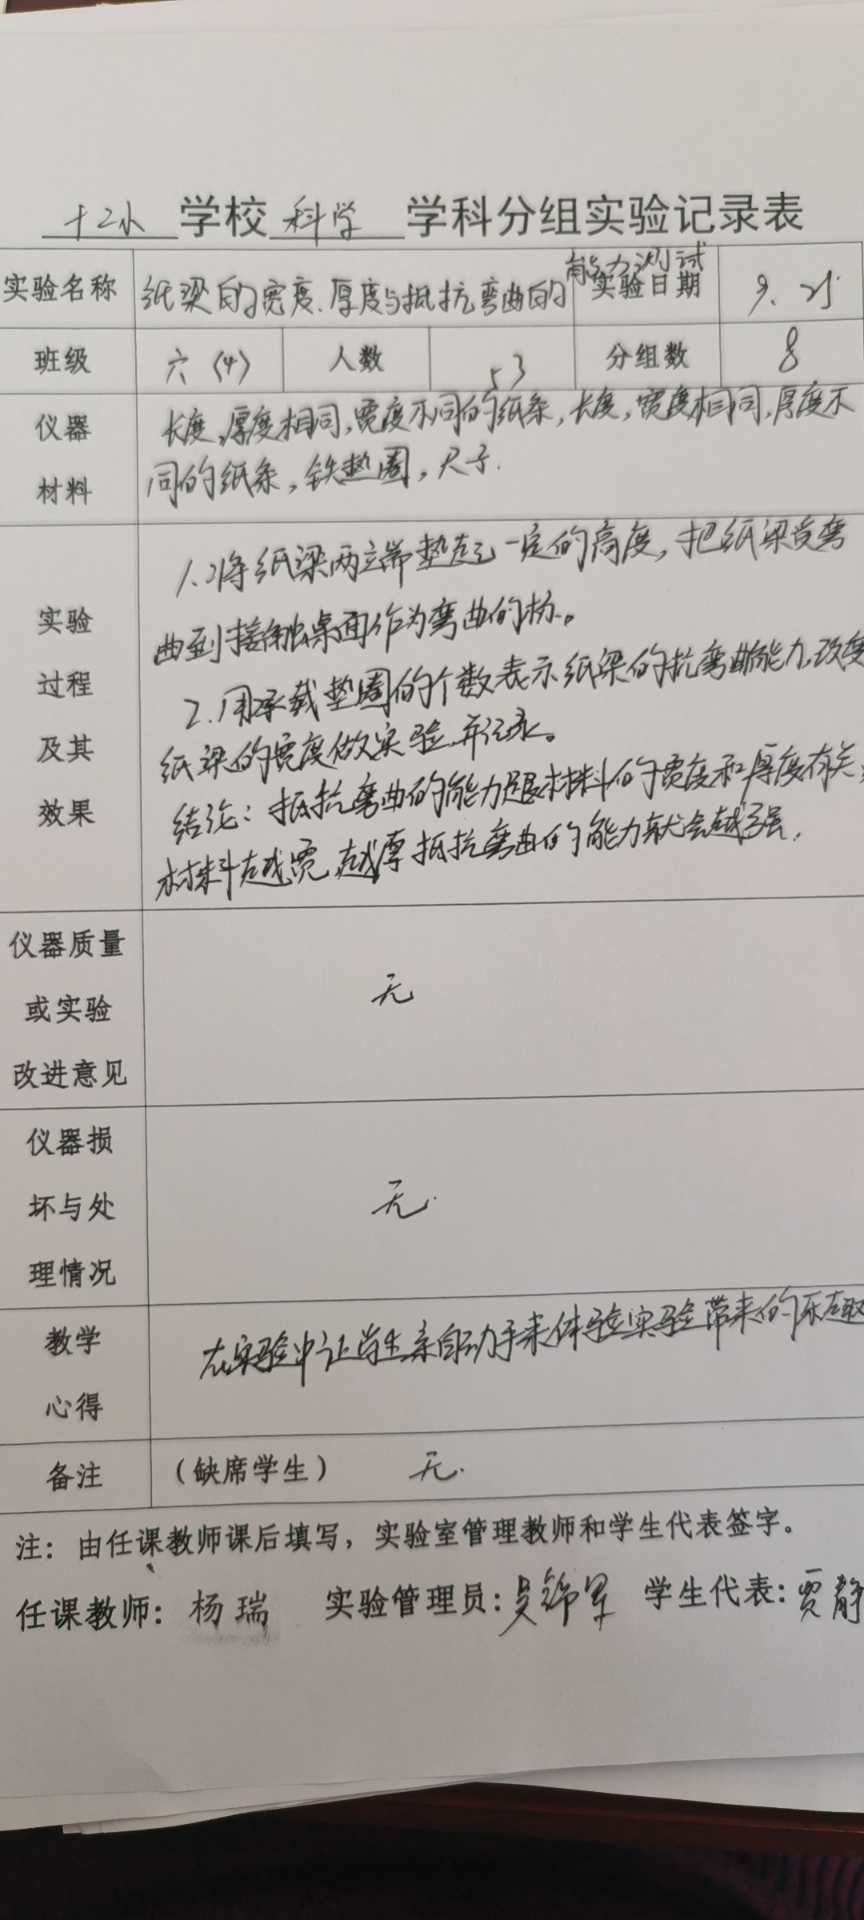 十二小 学校 科学 学科分组实验记录表
实验名称 纸梁的宽度.厚度与抵抗弯曲的能力测试 实验日期 9.25
班级 六(4) 人数 53 分组数 8
仪器材料 长度,厚度相同,宽度不同的纸条,长度,宽度相同,厚度不
同的纸条,铁垫圈,尺子.
实验过程及其效果
1.将纸梁两端垫起一定的高度,把纸梁受弯
曲到接触桌面作为弯曲的标。
2.用承载垫圈的个数表示纸梁的抗弯曲能力,改变
纸梁的宽度做实验并记录。
结论:抵抗弯曲的能力跟材料的宽度和厚度有关,
材料越宽,越厚抵抗弯曲的能力就会越强.
仪器质量或实验改进意见 无
仪器损坏与处理情况 无.
教学心得 在实验中让学生亲自动手来体验实验带来的乐趣
备注 (缺席学生) 无.
注:由任课教师课后填写,实验室管理教师和学生代表签字。
任课教师:杨瑞 实验管理员:吴锦军 学生代表:贾静